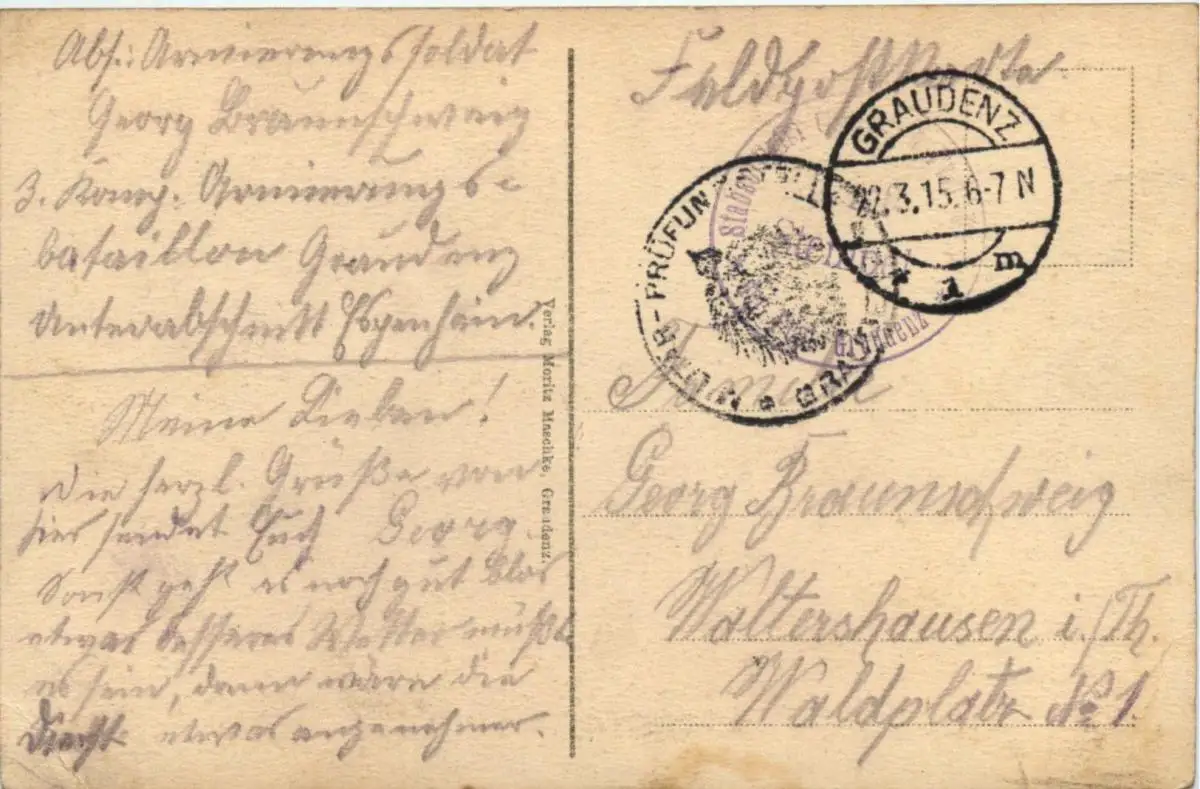 Abs.: Armierungssoldat
Georg Braunschweig
3. Komp. Armierungs-
bataillon Graudenz
Unterabschnitt Hohenhain.
Meine Lieben!
Die herzl. Grüße von
hier sendet Euch Georg.
Sonst geht es noch gut blos
etwas besseres Wetter müßte
es sein, dann wäre die
etwas angenehmer.
Verlag Moritz Maschke, Graudenz.
Feldpostkarte
GRAUDENZ
.3.15.6-7 N
1 m
MILITÄR-PRÜFUNGSSTELLE
GRA
Graudenz
Familie
Georg Braunschweig
Waltershausen i./Th.
Waldplatz No 1.